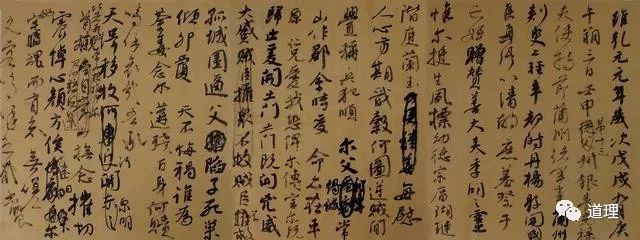 維乾元元年歲次戊戌九月庚
午朔三日壬申第十三叔銀青光祿
夫使持節蒲州諸軍事蒲州
刺史上輕車都尉丹楊縣開國
侯真卿以清酌庶羞祭于
亡姪贈贊善大夫季明之靈
惟爾挺生夙標幼德宗廟瑚璉
階庭蘭玉每慰
人心方期戩穀何圖逆賊間
釁稱兵犯順爾父竭誠常
山作郡余時受命亦在平
原仁兄愛我俾爾傳言爾既
歸止爰開土門土門既開凶威
大蹙賊臣擁眾不救
孤城圍逼父陷子死巢
傾卵覆天不悔禍誰為
荼毒念爾遘殘百身何贖
嗚呼哀哉吾承
天澤移牧河關泉明
撫念摧切
震悼心顏方俟
宅魂而有知無嗟
久客嗚呼哀哉尚饗
道理